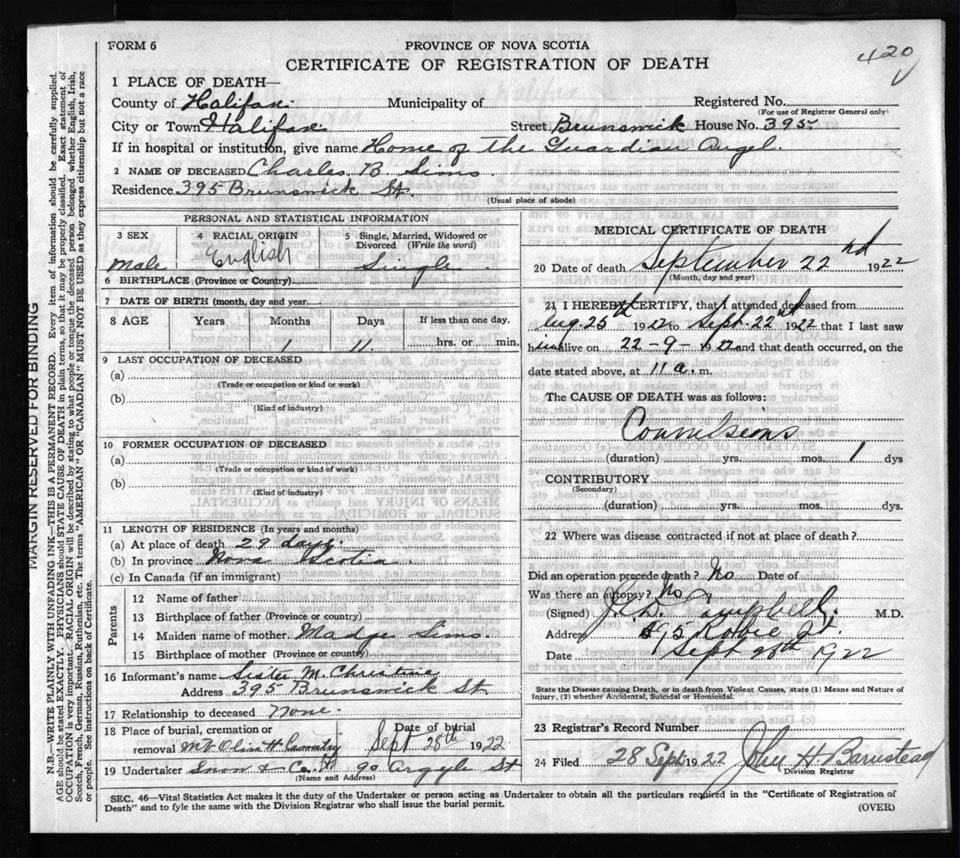 420
FORM 6
PROVINCE OF NOVA SCOTIA
CERTIFICATE OF REGISTRATION OF DEATH
1 PLACE OF DEATH—
County of Halifax. Municipality of Registered No.
(For use of Registrar General only)
City or Town Halifax Street Brunswick House No. 395
If in hospital or institution, give name Home of the Guardian Angel.
2 NAME OF DECEASED Charles B. Sims.
Residence 395 Brunswick St.
(Usual place of abode)
PERSONAL AND STATISTICAL INFORMATION
3 SEX 4 RACIAL ORIGIN 5 Single, Married, Widowed or
Divorced (Write the word)
Male English Single
6 BIRTHPLACE (Province or Country)
7 DATE OF BIRTH (month, day and year)
8 AGE Years Months Days If less than one day,
1 11 hrs. or min.
9 LAST OCCUPATION OF DECEASED
(a)
(Trade or occupation or kind or work)
(b)
(Kind of industry)
10 FORMER OCCUPATION OF DECEASED
(a)
(Trade or occupation or kind of work)
(b)
(Kind of industry)
11 LENGTH OF RESIDENCE (In years and months)
(a) At place of death 29 days.
(b) In province Nova Scotia
(c) In Canada (if an immigrant)
Parents
12 Name of father
13 Birthplace of father (Province or country)
14 Maiden name of mother Madge Sims.
15 Birthplace of mother (Province or country)
16 Informant's name Sister M. Christine
Address 395 Brunswick St
17 Relationship to deceased None.
18 Place of burial, cremation or Date of burial
removal Mt Olivet Cemetry Sept 28th 1922
19 Undertaker Snow & Co. 90 Argyle St
(Name and Address)
MEDICAL CERTIFICATE OF DEATH
20 Date of death September 22nd 1922
(Month, day and year)
21 I HEREBY CERTIFY, that I attended deceased from
Aug. 25th 1922 to Sept. 22nd 1922 that I last saw
him alive on 22-9-1922 and that death occurred, on the
date stated above, at 11 a. m.
The CAUSE OF DEATH was as follows:
Convulsions
(duration) yrs. mos. 1 dys
CONTRIBUTORY
(Secondary)
(duration) yrs. mos. dys.
22 Where was disease contracted if not at place of death?
Did an operation precede death? No Date of
Was there an autopsy? No
(Signed) Campbell M.D.
Address 95 St.
Date Sept 1922
State the Disease causing Death, or in death from Violent Causes, state (1) Means and Nature of
Injury, (2) whether Accidental, Suicidal or Homicidal.
23 Registrar's Record Number
24 Filed 28 Sept 1922 John H Barnstead
Division Registrar
SEC. 46—Vital Statistics Act makes it the duty of the Undertaker or person acting as Undertaker to obtain all the particulars required in the "Certificate of Registration of
Death" and to fyle the same with the Division Registrar who shall issue the burial permit. (OVER)
MARGIN RESERVED FOR BINDING
N.B.—WRITE PLAINLY WITH UNFADING INK—THIS IS A PERMANENT RECORD. Every item of information should be carefully supplied.
AGE should be stated EXACTLY. PHYSICIANS should STATE CAUSE OF DEATH in plain terms, so that it may be properly classified. Exact statement of
OCCUPATION is very important. RACIAL ORIGIN will be described by stating to what people or tongue the deceased person belonged whether English, Irish,
Scotch, French, German, Russian, Ruthenian, etc. The terms "AMERICAN" or "CANADIAN" MUST NOT BE USED as they express citizenship but not a race
or people. See instructions on back of Certificate.